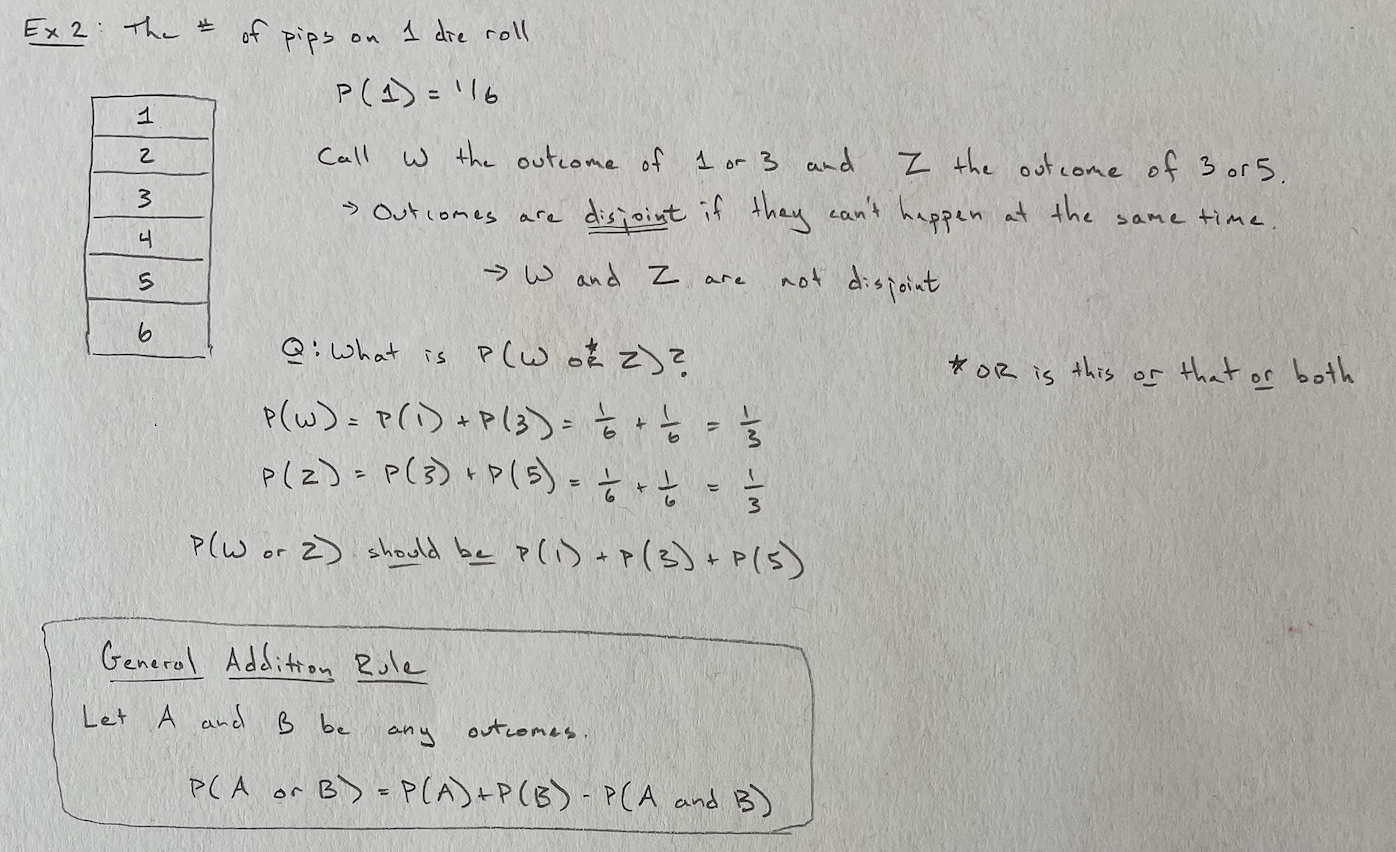 Ex 2: The # of pips on 1 die roll
P(1) = 1/6
1
2
3
4
5
6
Call W the outcome of 1 or 3 and Z the outcome of 3 or 5.
→ Outcomes are disjoint if they can't happen at the same time.
→ W and Z are not disjoint
Q: What is P(W OR* Z)?
* OR is this or that or both
P(W) = P(1) + P(3) = 1/6 + 1/6 = 1/3
P(Z) = P(3) + P(5) = 1/6 + 1/6 = 1/3
P(W or Z) should be P(1) + P(3) + P(5)
General Addition Rule
Let A and B be any outcomes.
P(A or B) = P(A) + P(B) - P(A and B)